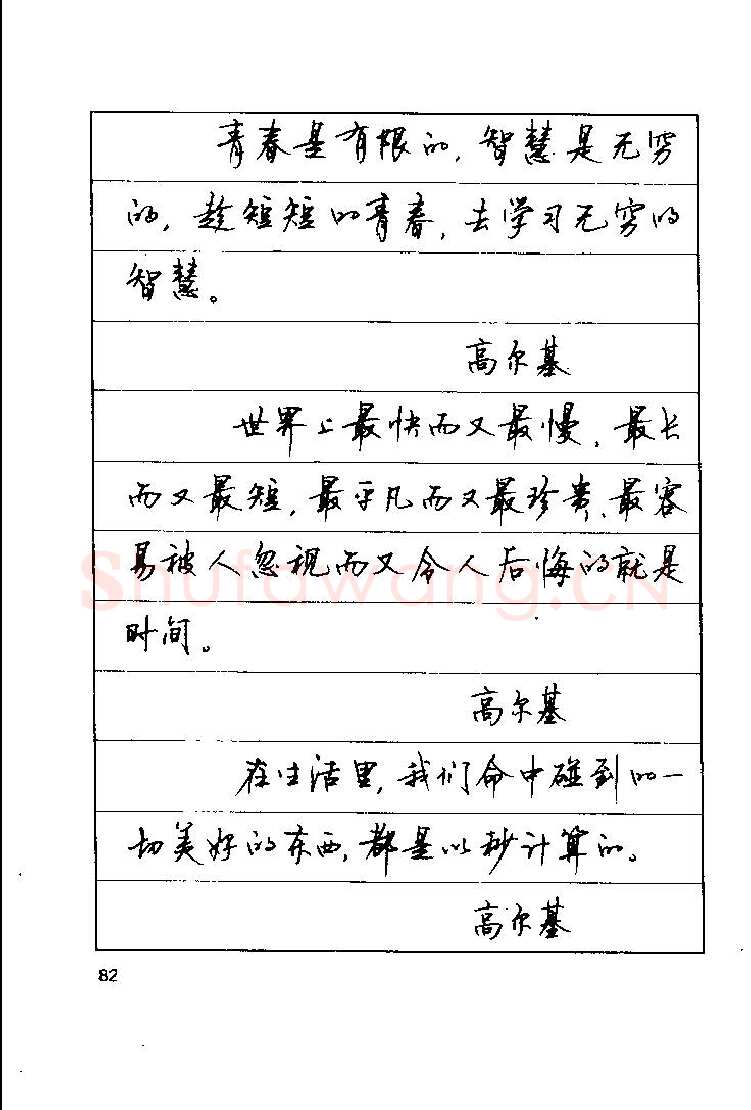 青春是有限的,智慧是无穷
的,趁短短的青春,去学习无穷的
智慧。
高尔基
世界上最快而又最慢、最长
而又最短,最平凡而又最珍贵、最容
易被人忽视而又令人后悔的就是
时间。
高尔基
在生活里,我们命中碰到的一
切美好的东西,都是以秒计算的。
高尔基
82
Shufawang.CN